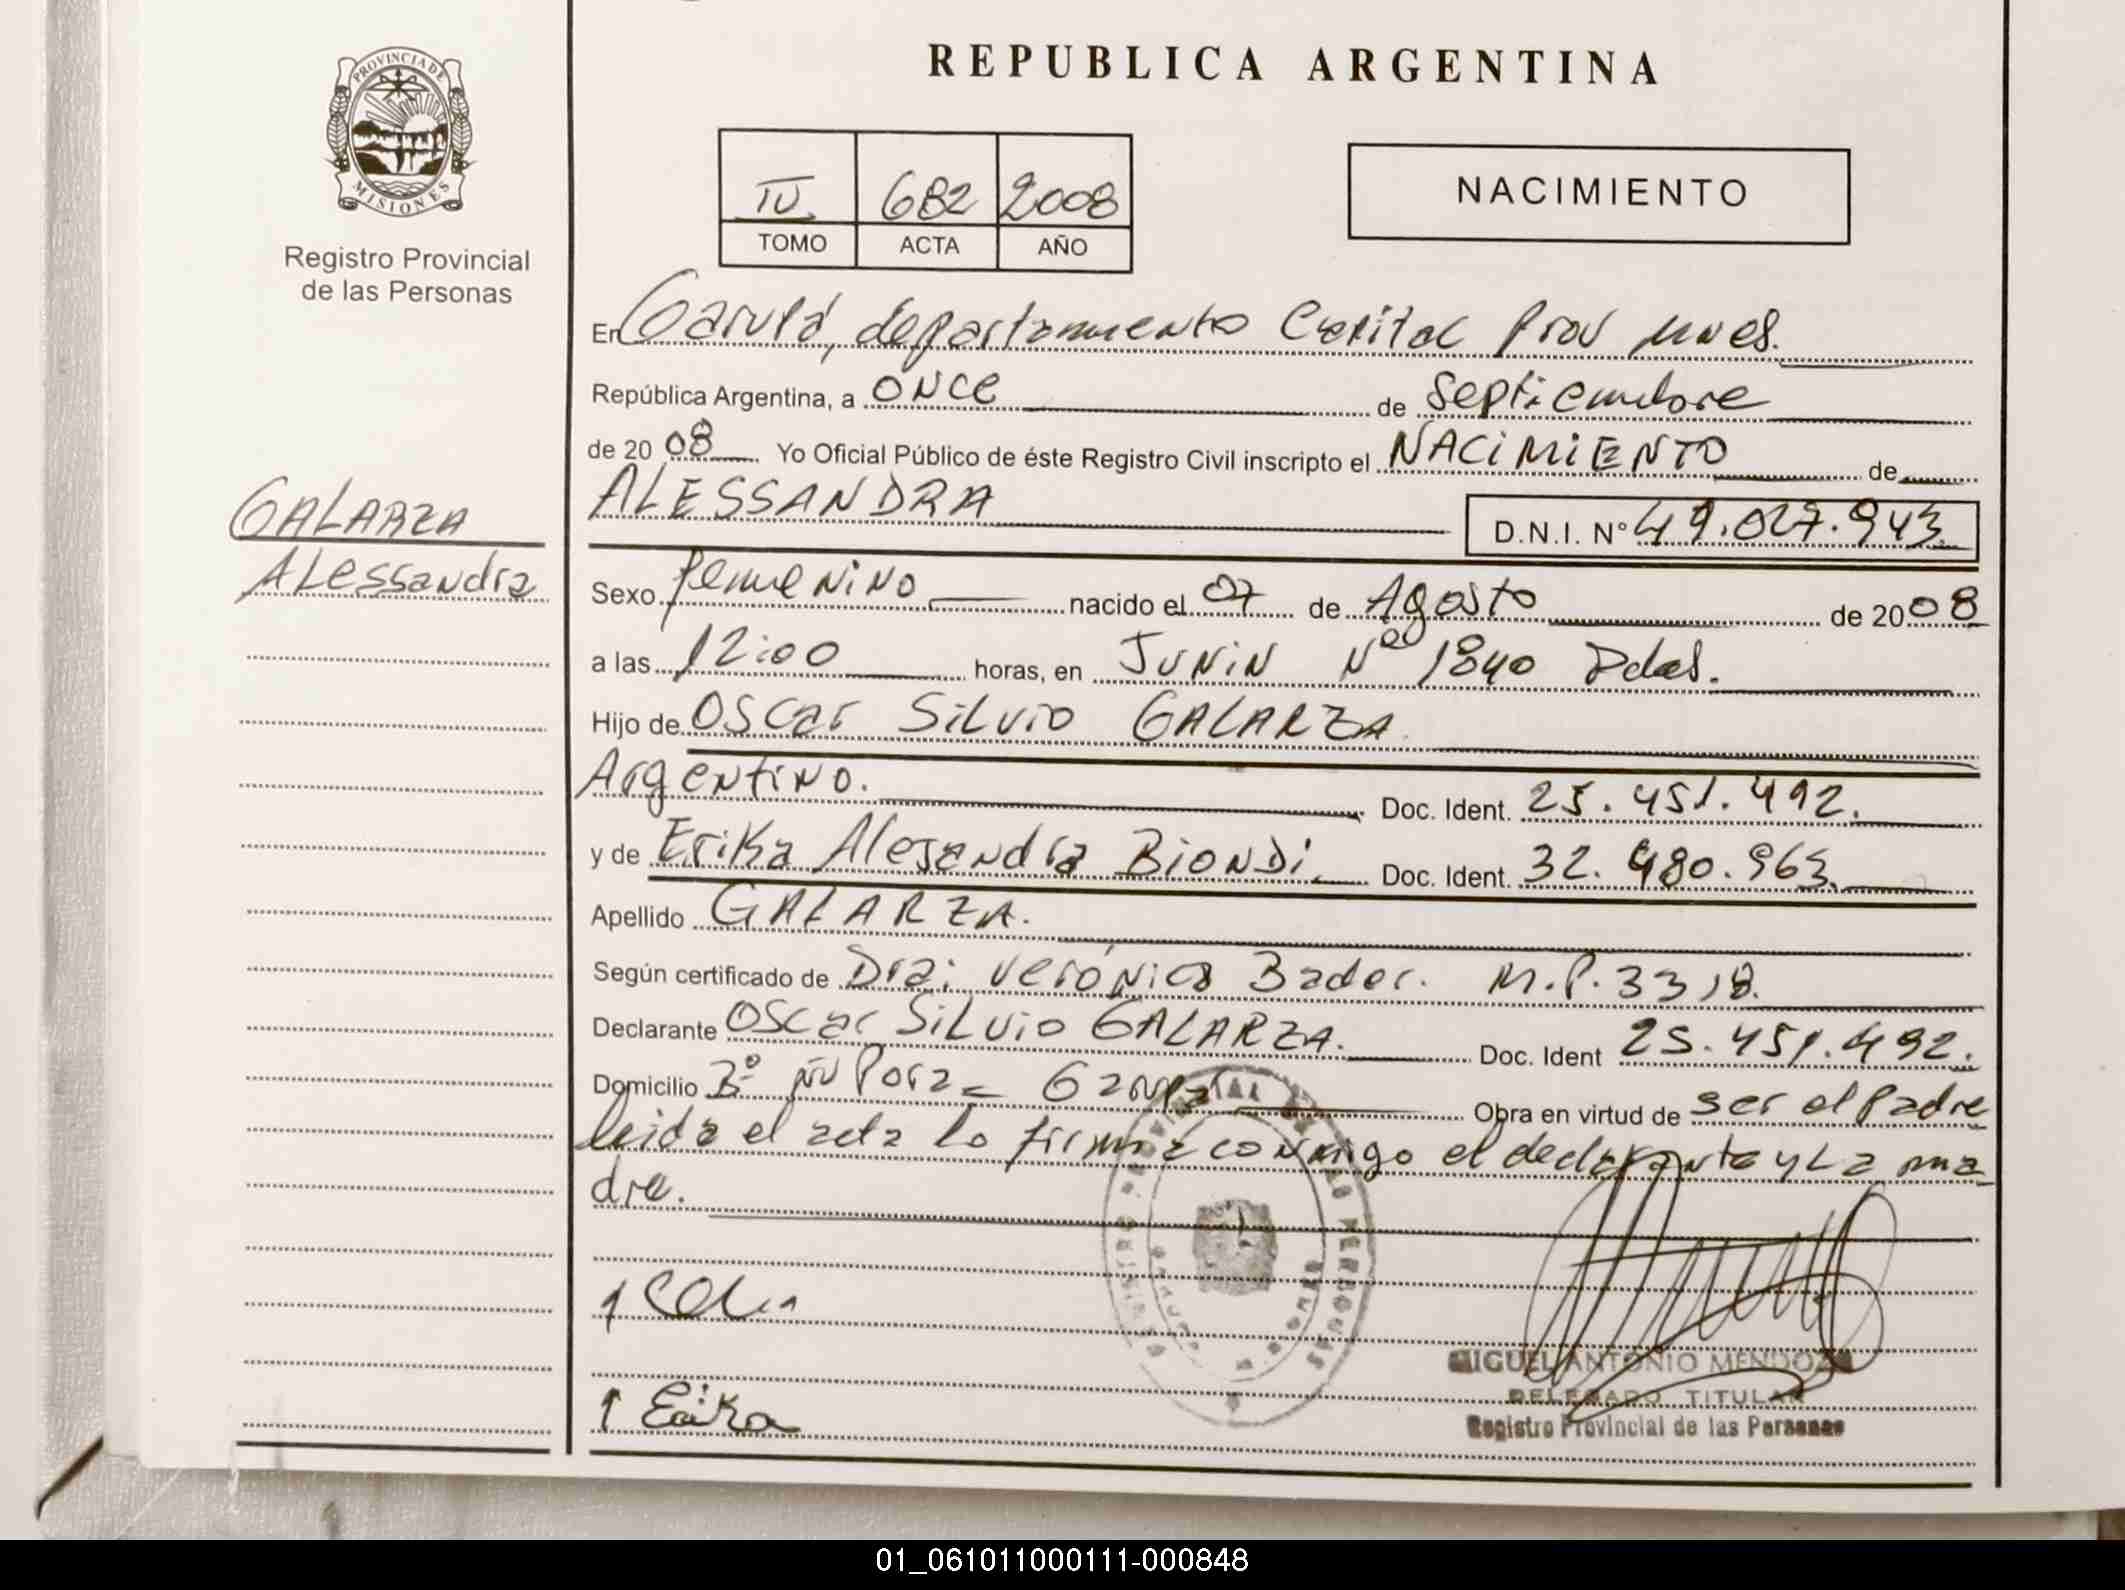 REPUBLICA ARGENTINA
PROVINCIA DE
MISIONES
Registro Provincial
de las Personas
IV 682 2008
TOMO ACTA AÑO
NACIMIENTO
En Garupá, departamento Capital Prov Mnes.
República Argentina, a once de septiembre
de 2008 Yo Oficial Público de éste Registro Civil inscripto el NACIMIENTO de
GALARZA
Alessandra
ALESSANDRA D.N.I. Nº 49.027.943
Sexo femenino nacido el 07 de Agosto de 2008
a las 12:00 horas, en JUNIN Nº 1840 Pdas.
Hijo de Oscar Silvio GALARZA
Argentino. Doc. Ident. 25.451.492.
y de Erika Alesandra Biondi Doc. Ident. 32.480.963.
Apellido GALARZA.
Según certificado de Dra: Verónica Bader. M.P. 3318.
Declarante Oscar Silvio GALARZA. Doc. Ident 25.451.492.
Domicilio Bº Ñu Pora = Garupa Obra en virtud de ser el Padre
leida el acta lo firma conmigo el declarante y La ma
dre.
Erika
MIGUEL ANTONIO MENDOZA
DELEGADO TITULAR
Registro Provincial de las Personas
01_061011000111-000848